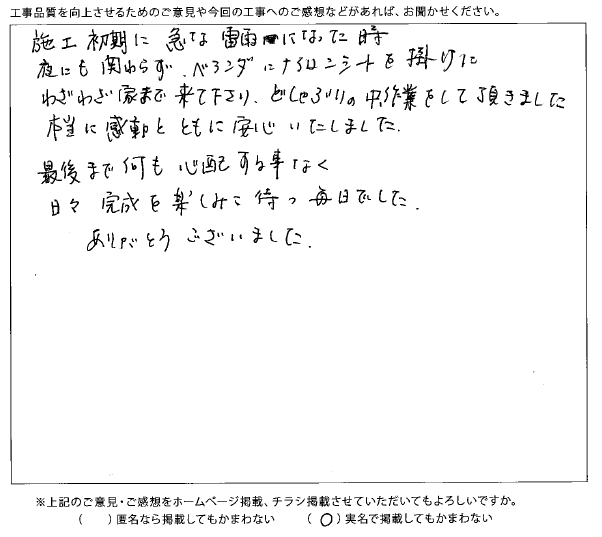 工事品質を向上させるためのご意見や今回の工事へのご感想などがあれば、お聞かせください。
施工初期に 急な雷雨になった時
夜にも関わらず、ベランダにナイロンシートを掛けに
わざわざ家まで来て下さり、どしゃぶりの中作業をして頂きました
本当に感動とともに安心いたしました。
最後まで何も心配する事なく
日々完成を楽しみに待つ毎日でした。
ありがとうございました。
※上記のご意見・ご感想をホームページ掲載、チラシ掲載させていただいてもよろしいですか。
(　)匿名なら掲載してもかまわない　(○)実名で掲載してもかまわない